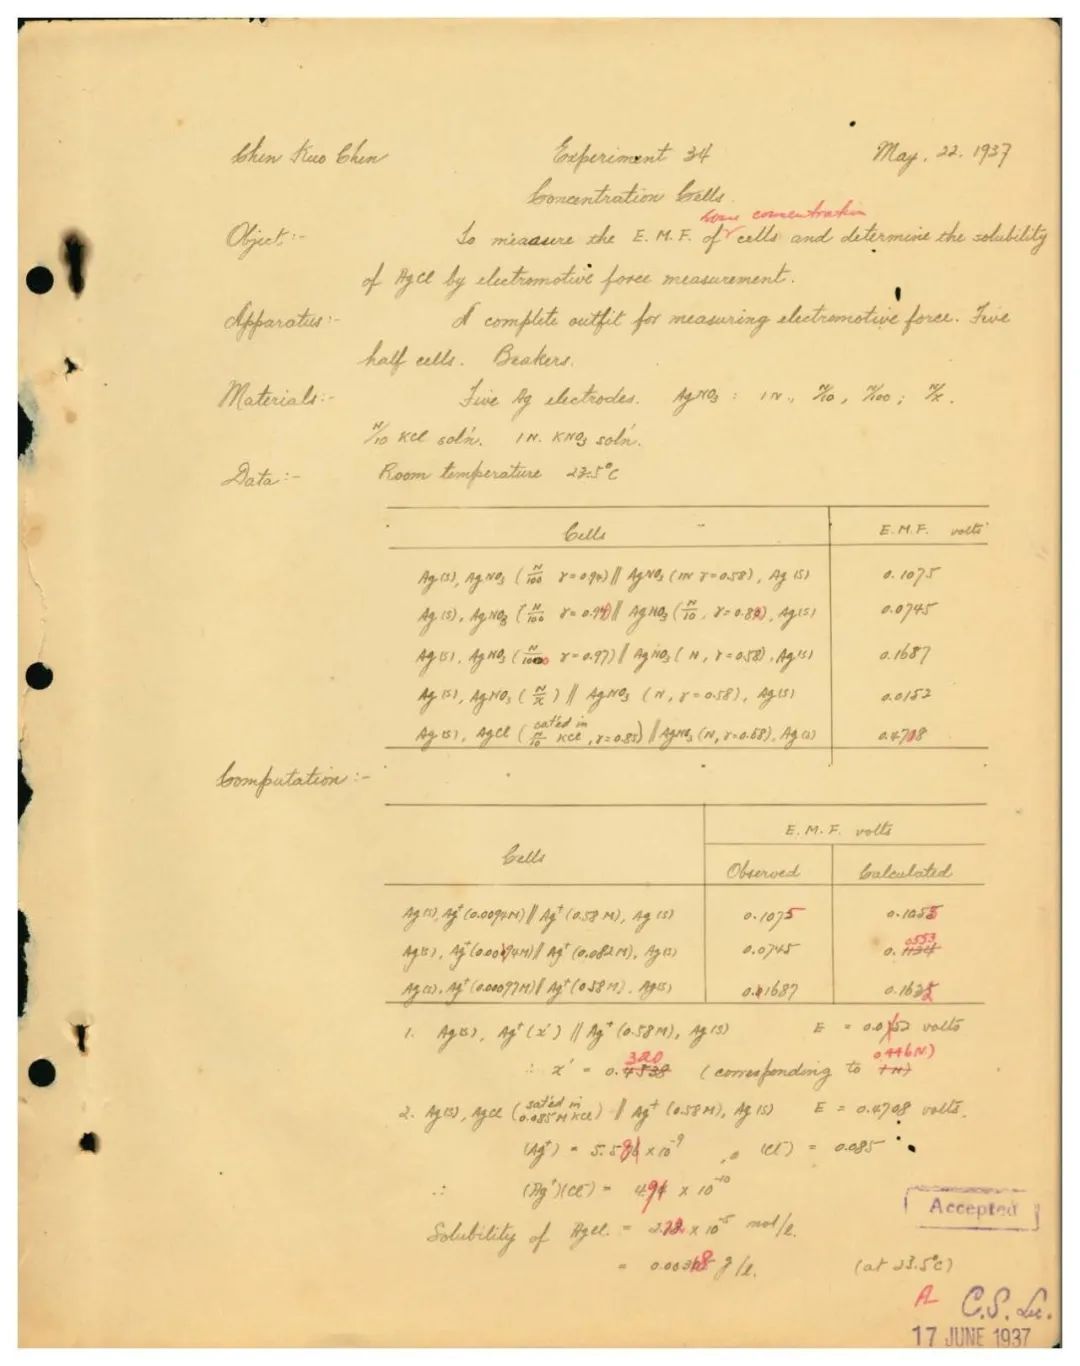 Chen Kuo Chen Experiment 34 May. 22. 1937
Concentration Cells.
some concentration
Object:- To measure the E.M.F. of cells and determine the solubility
of AgCl by electromotive force measurement.
Apparatus:- A complete outfit for measuring electromotive force. Five
half cells. Beakers.
Materials:- Five Ag electrodes. AgNO₃ : 1N., N/10, N/100; N/x.
N/10 KCl sol'n. 1N. KNO₃ sol'n.
Data:- Room temperature 23.5°C
Cells E.M.F. volts
Ag(s), AgNO₃ (N/100 γ=0.94) // AgNO₃ (1N γ=0.58), Ag(s) 0.1075
Ag(s), AgNO₃ (N/100 γ=0.94) // AgNO₃ (N/10, γ=0.82), Ag(s) 0.0745
Ag(s), AgNO₃ (N/1000 γ=0.97) // AgNO₃ (N, γ=0.58), Ag(s) 0.1687
Ag(s), AgNO₃ (N/x) // AgNO₃ (N, γ=0.58), Ag(s) 0.0152
Ag(s), AgCl (sat'ed in N/10 KCl, γ=0.85) // AgNO₃ (N, γ=0.58), Ag(s) 0.4708
Computation:-
E.M.F. volts
Cells Observed Calculated
Ag(s), Ag⁺(0.0094M) // Ag⁺(0.58M), Ag(s) 0.1075 0.1055
Ag(s), Ag⁺(0.0094M) // Ag⁺(0.082M), Ag(s) 0.0745 0.0553
Ag(s), Ag⁺(0.00097M) // Ag⁺(0.58M), Ag(s) 0.1687 0.1632
1. Ag(s), Ag⁺(x') // Ag⁺(0.58M), Ag(s) E = 0.0152 volts
∴ x' = 0.320 (corresponding to 0.446N)
2. Ag(s), AgCl (sat'ed in 0.085M KCl) // Ag⁺(0.58M), Ag(s) E = 0.4708 volts.
(Ag⁺) = × 10⁻⁹, (Cl⁻) = 0.085
∴ (Ag⁺)(Cl⁻) = × 10⁻¹⁰
Solubility of AgCl. = × 10⁻⁵ mol/l.
= g/l. (at 23.5°C)
Accepted
A C.S. Lu.
17 JUNE 1937